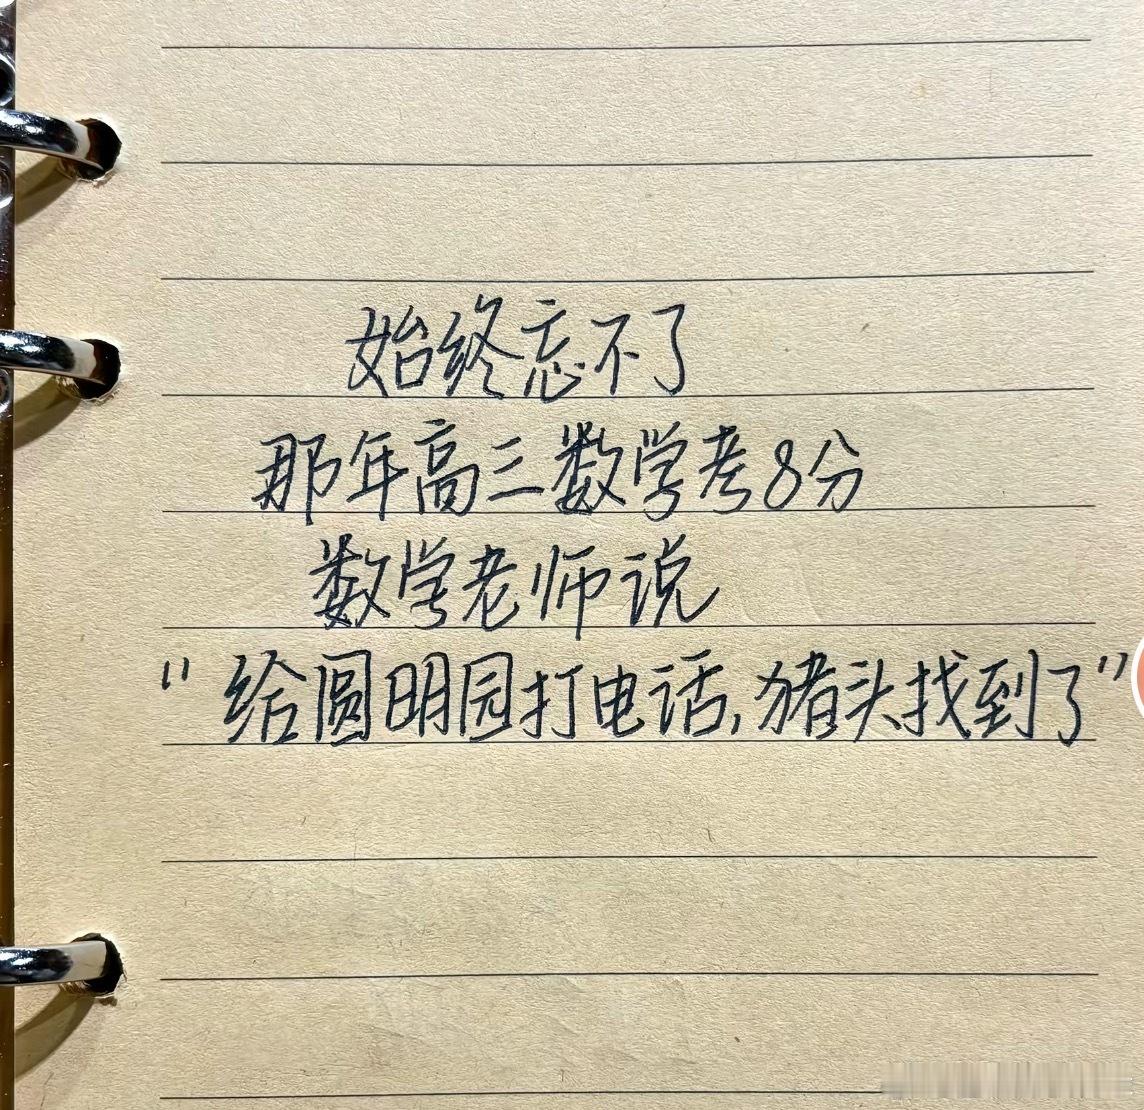 始终忘不了
那年高三数学考8分
数学老师说
“给圆明园打电话,猪头找到了”